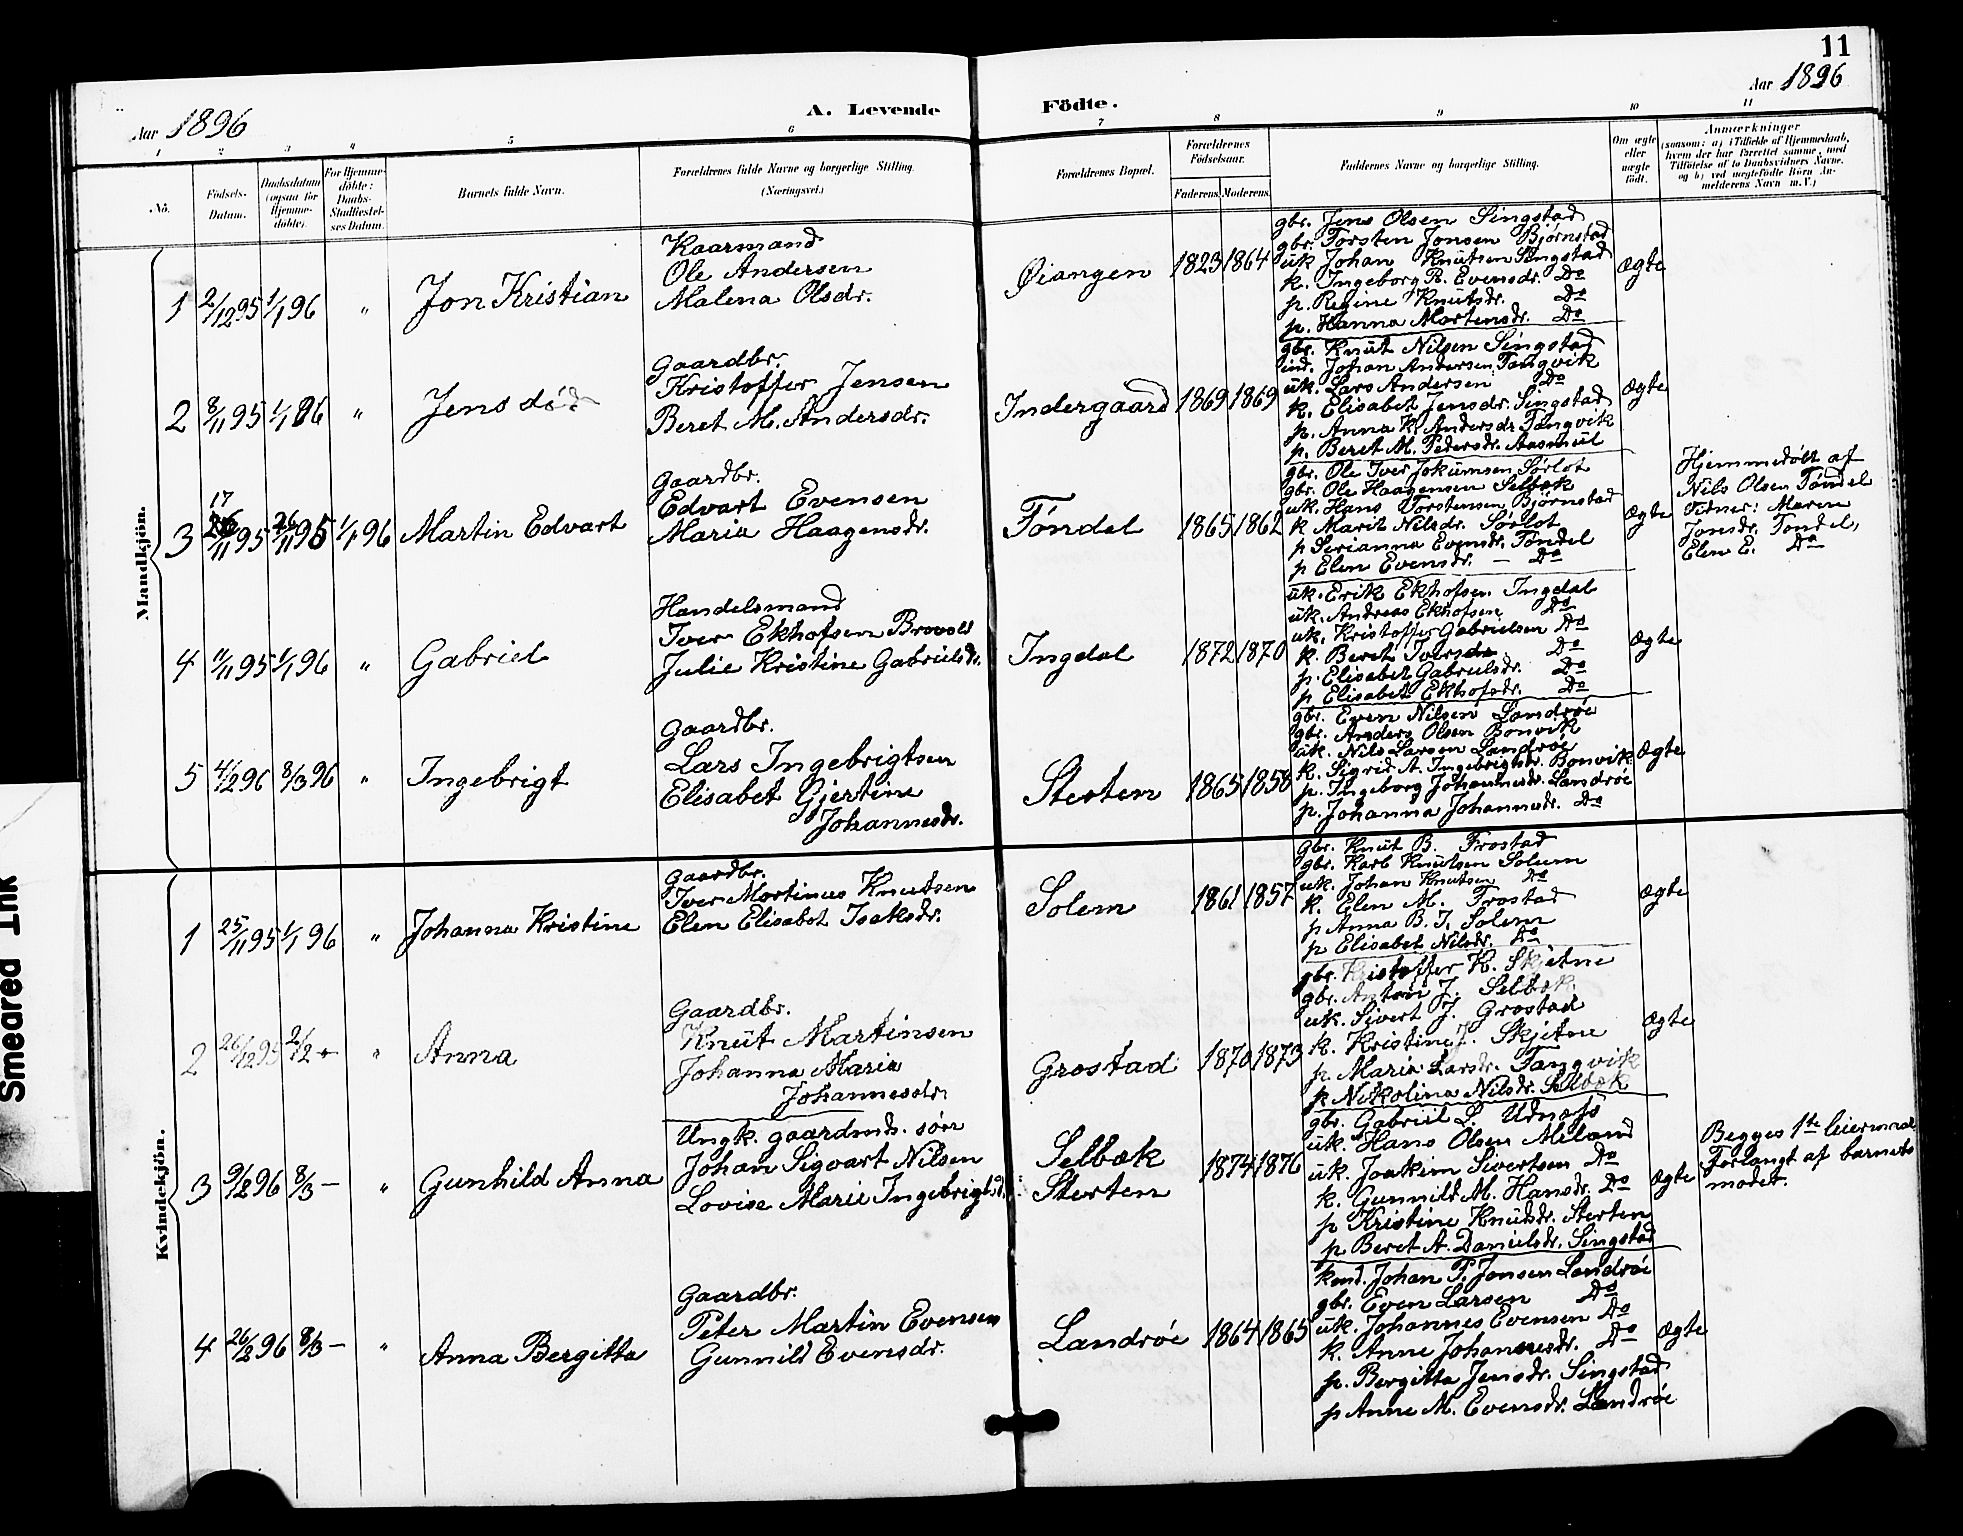 11
Aar 1896
A. Levende Födte.
Aar 1896
1 2 3 4 5 6 7 8 9 10 11
No.
Födsels-Datum.
Daabsdatum (ogsaa for Hjemme-döbte).
For Hjemme-döbte: Daabs-Stadfæstel-ses Datum.
Barnets fulde Navn.
Forældrenes fulde Navne og borgerlige Stilling.
(Næringsvei.)
Forældrenes Bopæl.
Forældrenes Födselsaar.
Faderens. Moderens.
Faddernes Navne og borgerlige Stilling.
Om ægte eller uægte födt.
Anmærkninger
(saasom: a) i Tilfælde af Hjemmedaab, hvem der har forrettet samme, med Tilföielse af to Daabsvidners Navne, og b) ved uægtefödte Börn An-melderens Navn m.V.)
Mandkjön.
1 2/12 95 1/1 96 " Jon Kristian
Kaarmand
Ole Andersen
Malena Olsdr.
Øiangen 1823 1864
gbr. Jens Olsen Singstad
gbr. Torsten Jonsen Bjørnstad
uk Johan Knutsen Singstad
k. Ingeborg B. Evensdr. Do
p. Regine Knutsdr. Do
p. Hanna Martensdr. Do
Ægte
2 8/11 95 1/1 96 " Jens
Gaardbr.
Kristoffer Jensen
Beret M. Andersdr.
Indergaard 1869 1869
gbr. Knut Nilsen Singstad
ind. Johan Andersen Tangvik
uk. Lars Andersen Do
k. Elisabet Jensdr. Singstad
p. Anna K. Andersdr Tangvik
p. Beret M. Pedersdr. Aasmul
Ægte
3 17/11 95 26/11 95 1/1 96 Martin Edvart
Gaardbr.
Edvart Evensen
Maria Haagensdr.
Tøndel 1865 1862
gbr. Ole Iver Jokumsen Sørlot
gbr. Ole Haagensen Selbæk
uk. Hans Torstensen Bjørnstad
k Marit Nilsdr. Sørlot
p Serianna Evensdr. Tøndel
p Elen Evensdr. — Do
Ægte
Hjemmedøbt af
Nils Olsen Tøndel
Vidner: Maren
Jonsdr. Tøndel,
Elen E. Do
4 11/11 95 1/1 96 " Gabriel
Handelsmand
Iver Ekhofsen Brovold
Julie Kristine Gabrielsdr.
Ingdal 1872 1870
uk. Erik Ekhofsen Ingdal
uk. Andreas Ekhofsen Do
uk. Kristoffer Gabrielsen Do
k. Beret Iversdr. Do
p. Elisabet Gabrielsdr. Do
p Elisabet Ekhofsdr. Do
Ægte
5 4/2 96 8/3 96 " Ingebrigt
Gaardbr.
Lars Ingebrigtsen
Elisabet Gjertine
Johannesdr.
Sterten 1865 1858
gbr. Even Nilsen Landrøe
gbr. Anders Olsen Bonvik
uk. Nils Larsen Landrøe
k. Sigrid A. Ingebrigtsdr. Bonvik
p. Ingeborg Johannesdr. Landrøe
p. Johanna Johannesdr. Do
Ægte
Kvindekjön.
1 25/11 95 1/1 96 " Johanna Kristine
Gaardbr.
Iver Martinus Knutsen
Elen Elisabet Isaksdr.
Solem 1861 1857
gbr. Knut B. Frostad
gbr. Karl Knutsen Solum
uk. Johan Knutsen Do
k. Elen M. Frostad
p Anna B. I. Solem
p Elisabet Nilsdr. Do
Ægte
2 26/12 95 2/2 - " Anna
Gaardbr.
Knut Martinsen
Johanna Maria
Johannesdr.
Grostad 1870 1873
gbr. Kristoffer K. Skjetne
gbr. Anton J. Selbæk
uk. Sivert J. Grostad
k. Kristine J. Skjetne
p. Maria Larsdr. Tangvik
p Nikolina Nilsdr. Selbæk
Ægte
3 9/2 96 8/3 — " Gunhild Anna
Ungk. gaardmds. søn
Johan Sigvart Nilsen
Lovise Marie Ingebrigtsd.
Selbæk
Sterten 1874 1876
gbr. Gabriel L. Udnæs
uk. Hans Olsen Meland
uk. Joakim Sivertsen Do
k. Gunnild M. Hansdr. Do
p Kristine Knutsdr. Sterten
p Beret A. Danielsdr. Singstad
Ægte
Begges 1ste leiermaal
Forlangt af barnets
moder.
4 26/2 96 8/3 — " Anna Bergitta
Gaardbr.
Peter Martin Evensen
Gunnild Evensdr.
Landrøe 1864 1865
Johan P. Jonsen Landrøe
gbr. Even Larsen Do
uk. Johannes Evensen Do
k. Anne Johannesdr. Do
p. Bergitta Jensdr. Singstad
p Anne M. Evensdr. Landrøe
Ægte
Smeared Ink